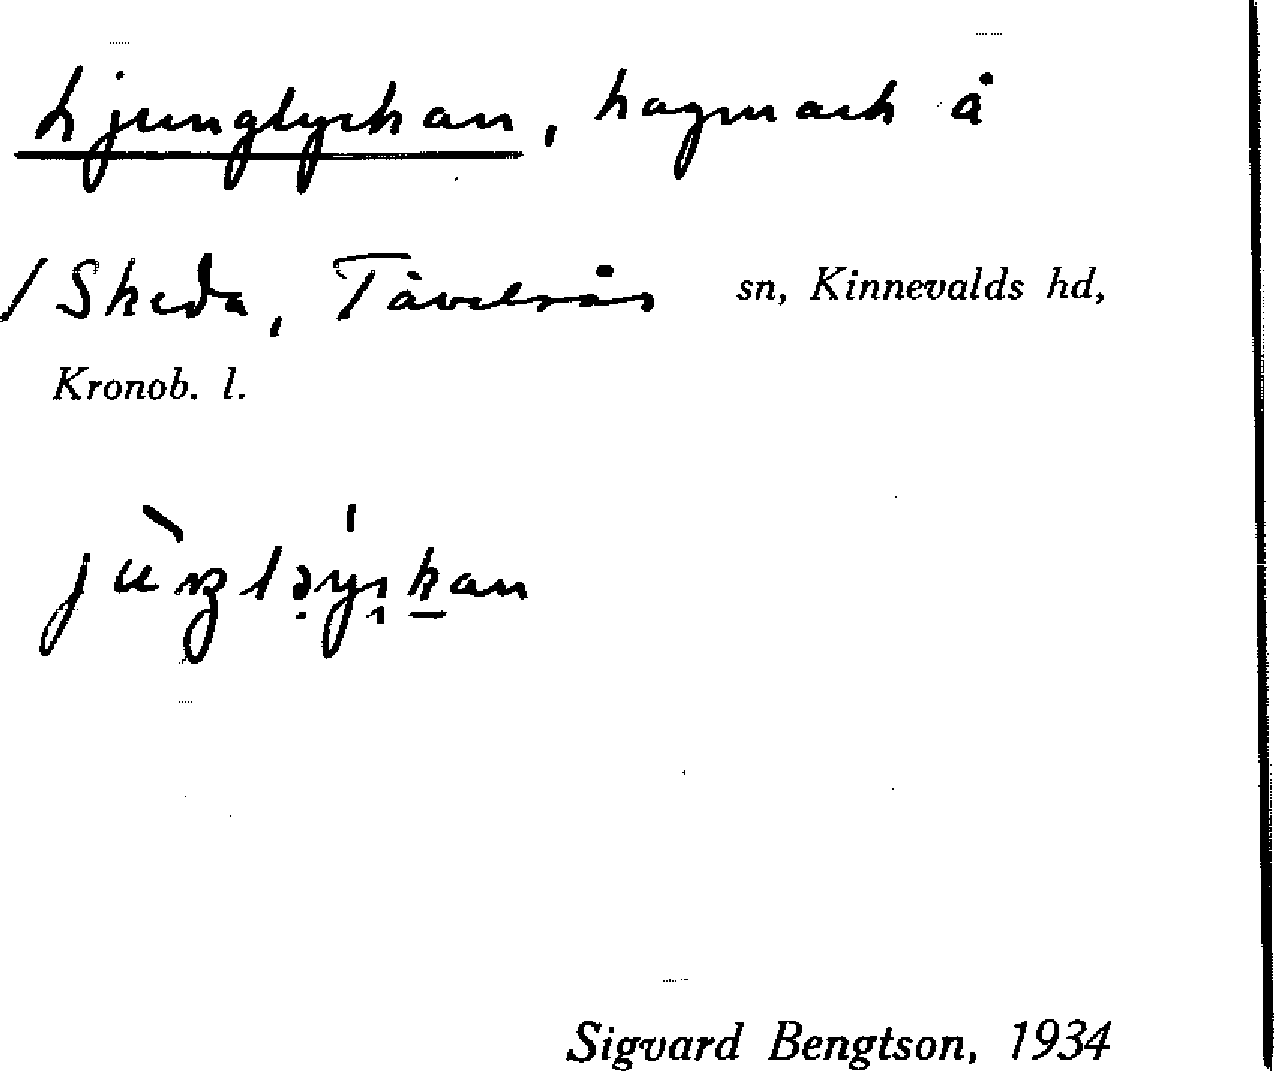 Ljunglyckan, hagmark å
/Skeda, Tävelsås sn, Kinnevalds hd,
Kronob. l.
Sigvard Bengtson, 1934